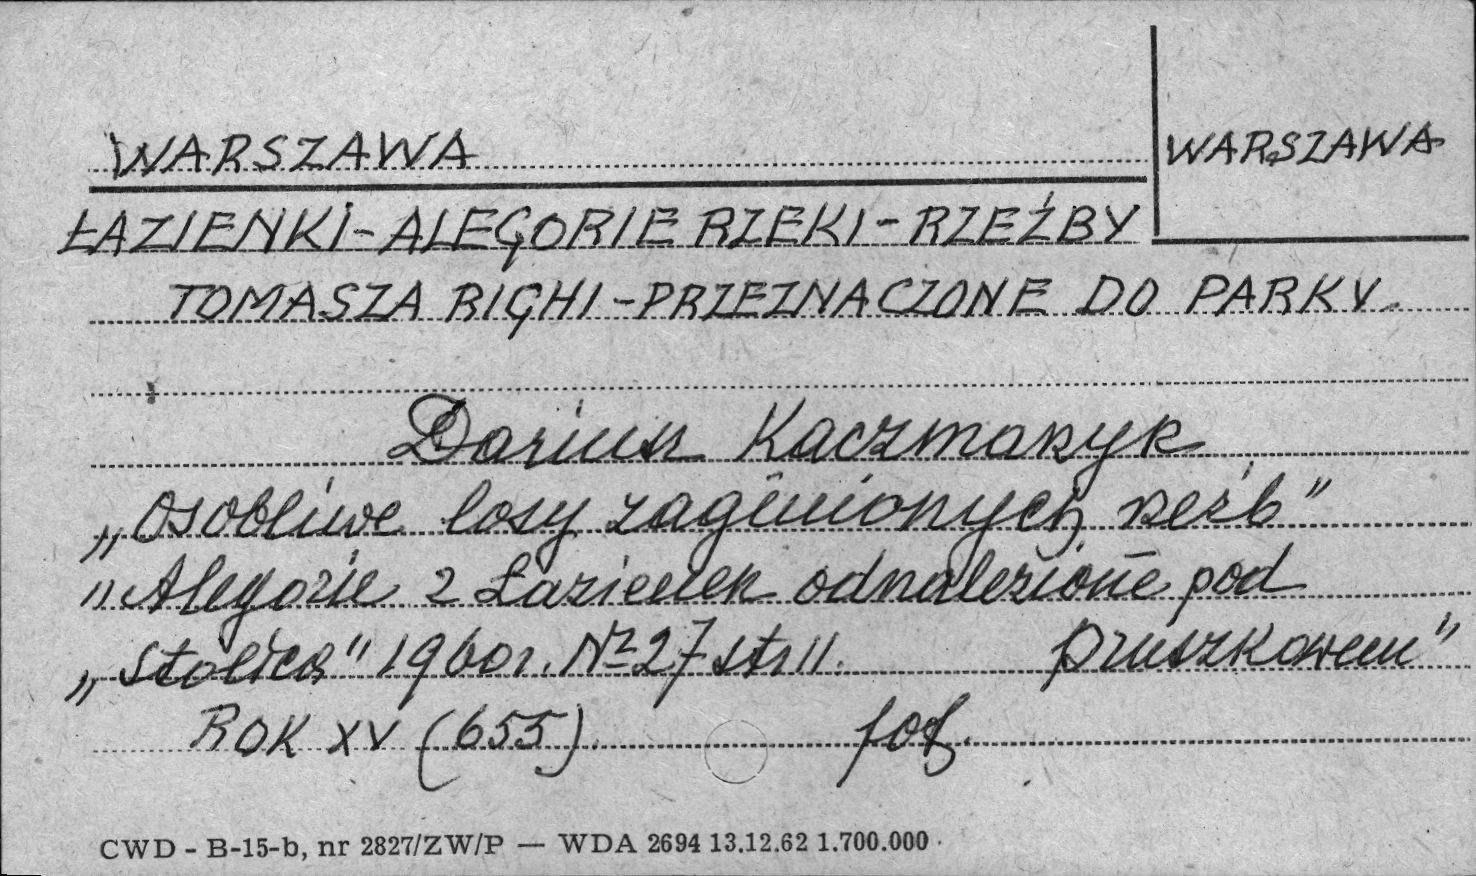 WARSZAWA
WARSZAWA
ŁAZIENKI-ALEGORIE RZEKI-RZEŹBY
TOMASZA RIGHI-PRZEZNACZONE DO PARKU.
Dariusz Kaczmarzyk
„Osobliwe losy zaginionych rzeźb"
„Alegorie z Łazienek odnalezione pod
Pruszkowem"
„Stolica" 1960r. Nr 27 str 11.
ROK XV (655). fot.
CWD - B-15-b, nr 2827/ZW/P — WDA 2694 13.12.62 1.700.000